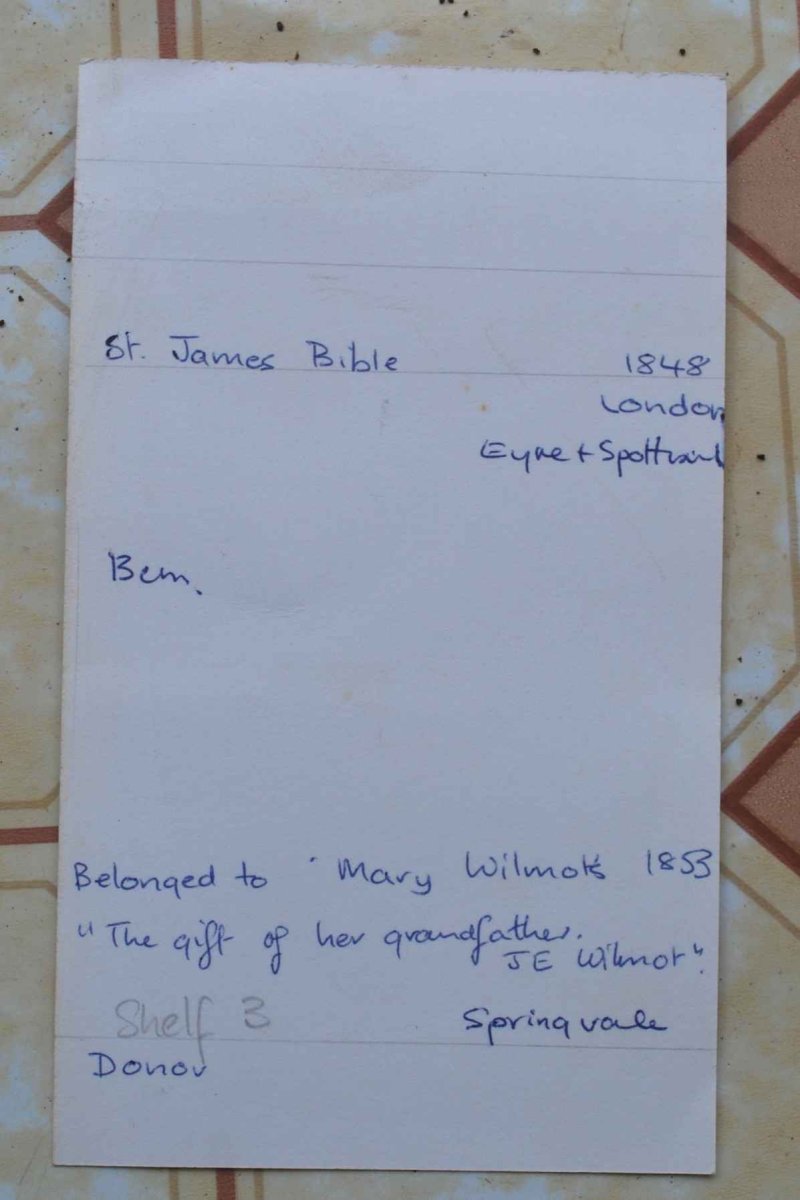 St. James Bible 1848
London
Eyre + Spottiswd
Bem.
Belonged to ' Mary Wilmot's 1853
"The gift of her grandfather.
JE Wilmot".
Shelf 3 Springvale
Donor